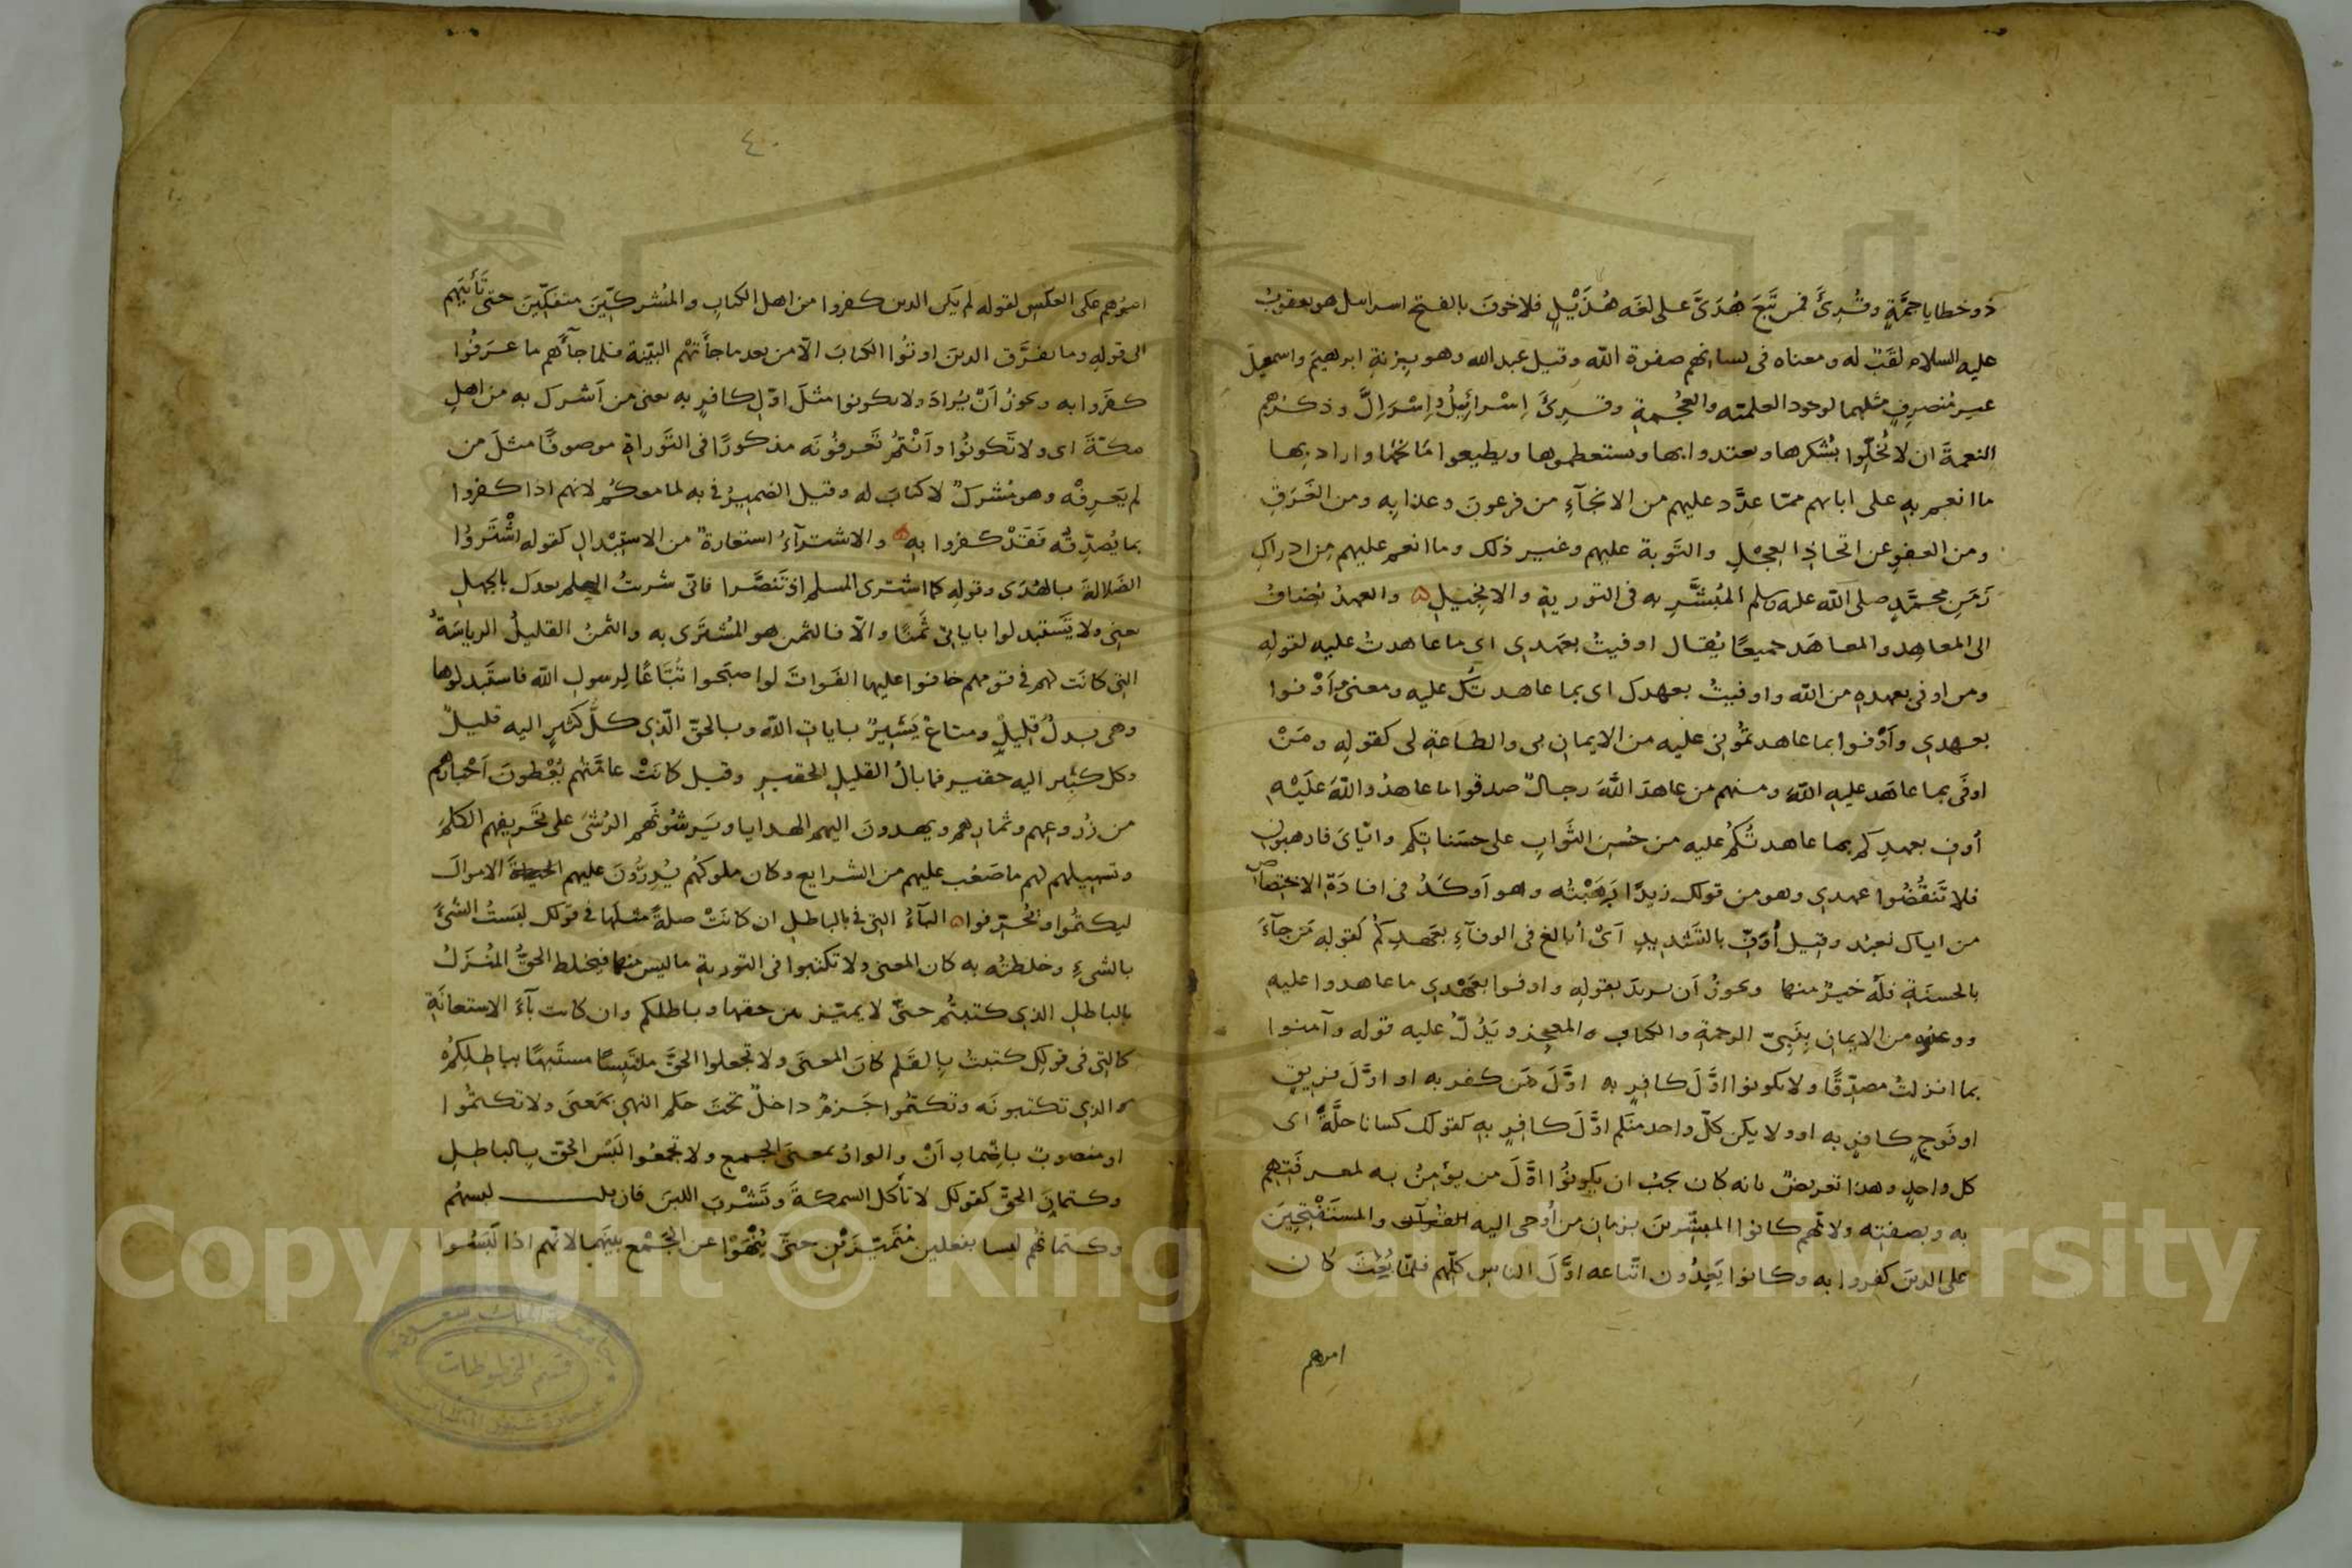 ذو خطايا جمّةٍ وقُرِئَ فمن تَّبِعَ هُدَىَّ على لغه هُذَيْلٍ فلا خوفَ بالفتح اسرائيل هو يعقوبُ
عليه السلام لقَبٌ له ومعناه فى لسانهم صفوة اللّه وقيل عبد الله وهو بِزنةِ ابرهيمَ واسمعيلَ
غير مُنصرِفٍ مثلهما لوجود العلميّه والعُجْمةِ وقُرِئَ اِسْرائِيلُ وِاِسْرَالَّ وذكرُهم
النعمةَ ان لا يُخلّوا بشُكرها ويعتدوا بها ويستعظموها ويطيعوا مانحَها واراد بها
ما انعم بهِ على ابائهم ممّا عدَّد عليهم من الانجآءِ من فرعونَ وعذابِه ومن الغَرَقِ
ومن العفوِ عن اتّخاذِ العِجْلِ والتَّوبة عليهم وغير ذلك وما انعم عليهم مِن ادراكِ
زَمَنِ محمّدٍ صلى اللّه عليه وسلم المُبَشَّرِ به فى التوريةِ والانجيلِ والعهدُ يُضافُ
الى المعاهِد والمعاهَد جميعًا يُقال اوفيتُ بعهدي اى ما عاهدتُ عليه لقولهِ
ومن اوفى بعهدِهِ من اللّه واوفيتُ بعهدك اى بما عاهدتُك عليهِ ومعنى وَاَوْفوا
بعهدي وَاَوْفوا بما عاهدتمُوني عليه من الايمانِ بى والطاعةِ لى كقولهِ ومَنْ
اوفَى بما عاهَد عليهِ اللّهَ ومنهم من عاهدَ اللّهَ رجالٌ صدقوا ما عاهدُوا اللّهَ علَيْهِ
أوفِ بعهدِكم بما عاهدتُكمْ عليه من حُسْنِ الثَّوابِ على حسَناتِكم وايّايَ فارهبونِ
فلا تَنقُضُوا عهدي وهو من قولك زيدًا رَهَبْتُه وهو اَوكَدُ فى افادَةِ الاختصاص
من اياك نعبُد وقيل أُوَفِّ بالتَشْديدِ اَىْ أبالغ فى الوفآءِ بعَهدِكمْ كقولهِ مَن جآءَ
بالحسنَةِ فلَهُ خيرٌ منها ويجوزُ اَن يريدَ بقولهِ واوفوا بعَهْدِي ما عاهدوا عليهِ
ووعدوه من الايمانِ بِنَبِيّ الرحمةِ والكتابِ المعجِز ويَدُلّ عليه قوله وآمنوا
بما انزلتُ مصدّقًا ولا تكونوا اوَّلَ كافِرٍ به اوَّلَ مَن كفر به او اوّلَ فريقٍ
او فَوجٍ كافرٍ به او ولا يكن كلّ واحد منكم اوَّلَ كافِرٍ بهِ كقولك كسانا حلَّةً اى
كل واحدٍ وهذا تعريضٌ بانه كان يجبُ ان يكونُوا اوّلَ من يؤمِنُ به لمعرفتِهِم
به وبصفتِه ولانّهم كانوا المبشّرينَ بزمانِ من أوحى اليه والمستَفْتِحِينَ
على الذين كفروا به وكانوا يَعِدُون اتّباعه اوَّلَ الناسِ كلّهم فلمّا بُعِثَ كان
امرهم
٤٠
امرُهم على العكسِ لقوله لم يَكن الذين كفروا من اهل الكتابِ والمُشركِينَ منفكّينَ حتى تَأْتِيَهُم
الى قولهِ وما تفرَّق الذينَ اوتُوا الكتابَ الّا من بعد ما جاءَتْهُم البيّنة فلما جاءَهُم ما عَرَفُوا
كفَروا به ويجوزُ اَنْ يُرادَ ولا تكونوا مثلَ اوّلِ كافرٍ به يعنى من اَشرك به من اهلِ
مكّةَ اى ولا تَكونُوا وَاَنْتُمْ تَعرفُونَه مذكورًا فى التَّوراةِ موصوفًا مثلَ من
لم يَعرِفْه وهو مُشركٌ لا كتابَ له وقيل الضميرُ فى به لما معكُم لانهم اذا كفروا
بما يُصدّقُه فَقَدْ كفروا بهِ والاشترآءُ استعارةٌ من الاستبْدالِ كقوله اشْتَرَوُا
الضَلالةَ بالهُدَى وقولهِ كما اشترى المسلم اذ تَنصَّرا فانّى شريتُ الحِلم بعدك بالجهلِ
يعنى ولا تَستَبدلوا باياتي ثَمنًا والّا فالثمن هو المُشترَى به والثمنُ القليلُ الرياسَةُ
التى كانَت لهم فى قومهم خافوا عليها الفَواتَ لو اصبَحوا تُبّاعًا لِرسولِ اللّه فاستَبدلوها
وهى بدلٌ قليلٌ ومتاعٌ يَسِيرٌ باياتِ اللّه وبالحقّ الّذِي كلُّ كثيرٍ اليه قليلٌ
وكل كبير اليه حقير فما بالُ القليلِ الحقيرِ وقيل كانَتْ عامَّتُهم يُعْطونَ اَحْبارَهُم
من زُروعِهم وثمارِهم ويهدونَ اليهم الهدايا ويَرشُونَهم الرُشَى على تَحريفِهم الكلمَ
وتسهيلهم لهم ما صَعُب عليهم من الشرايع وكان ملوكهُم يُدِرُّونَ عليهم الاموالَ
ليكتُموا ويُحرّفوا البآءُ التى فى بالباطلِ ان كانَتْ صلةً مثلَها فى قولك لبَستُ الشىْءَ
بالشىءِ وخلطتُه به كان المعنى ولا تكتبوا فى التوريةِ ما ليس منها فيختلط الحقُّ المُنزَلُ
بالباطلِ الذى كتبتُم حتىّ لا يميّز بين حقها وباطلكم وان كانت بآءَ الاستعانَةِ
كالتى فى قولك كتبتُ بالقَلم كانَ المعنَى ولا تجعلوا الحقَّ ملتبِسًا مشتَبِهًا بباطِلِكُمْ
الذى تكتبونَه وتكتُموا جَزمٌ داخلٌ تحتَ حكم النهى بمَعنَى ولا تكتمُوا
او منصوبٌ باِضمارِ اَنْ والواوُ بمعنَى الجمع ولا تجمَعُوا لَبْسَ الحقّ بالباطِلِ
وكتمانَ الحقّ كقولك لا تأكل السمكةَ وتَشْربَ اللبنَ فان قلت لبسهُم
وكتمانهُم ليسا بفعلينِ مُتَميّزَيْنِ حتّى يُنْهَوْا عن الجَمْع بينَهما لانّهم اذا لَبَسُوا
Copyright © King Saud University
قسم المخطوطات